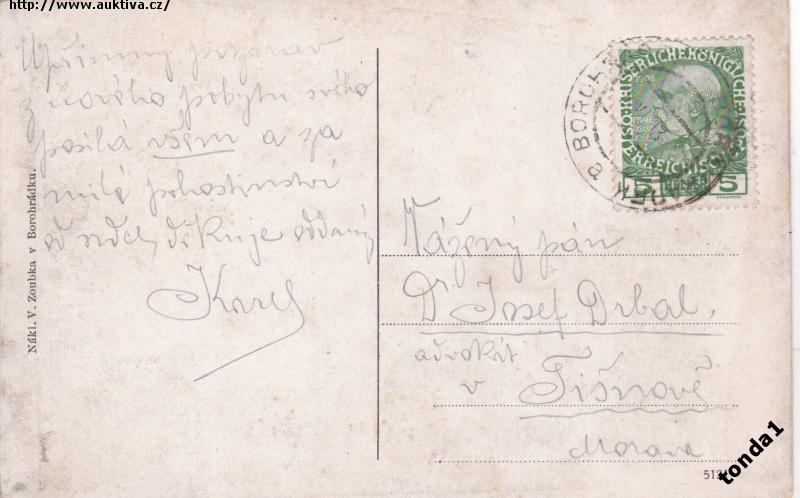 http://www.auktiva.cz/
Upřímný pozdrav
z nového pobytu svého
posílá všem a za
milé pohostinství
od srdce děkuje oddaný
Karel
Nákl. V. Zoubka v Borohrádku.
KAISERLICHE KÖNIGLICHE
1908
ÖSTERREICHISCHE
5 5
BOROH
a
Vážený pán
Dr. Josef Drbal,
advokát
v Tišnově
Morava
tonda1